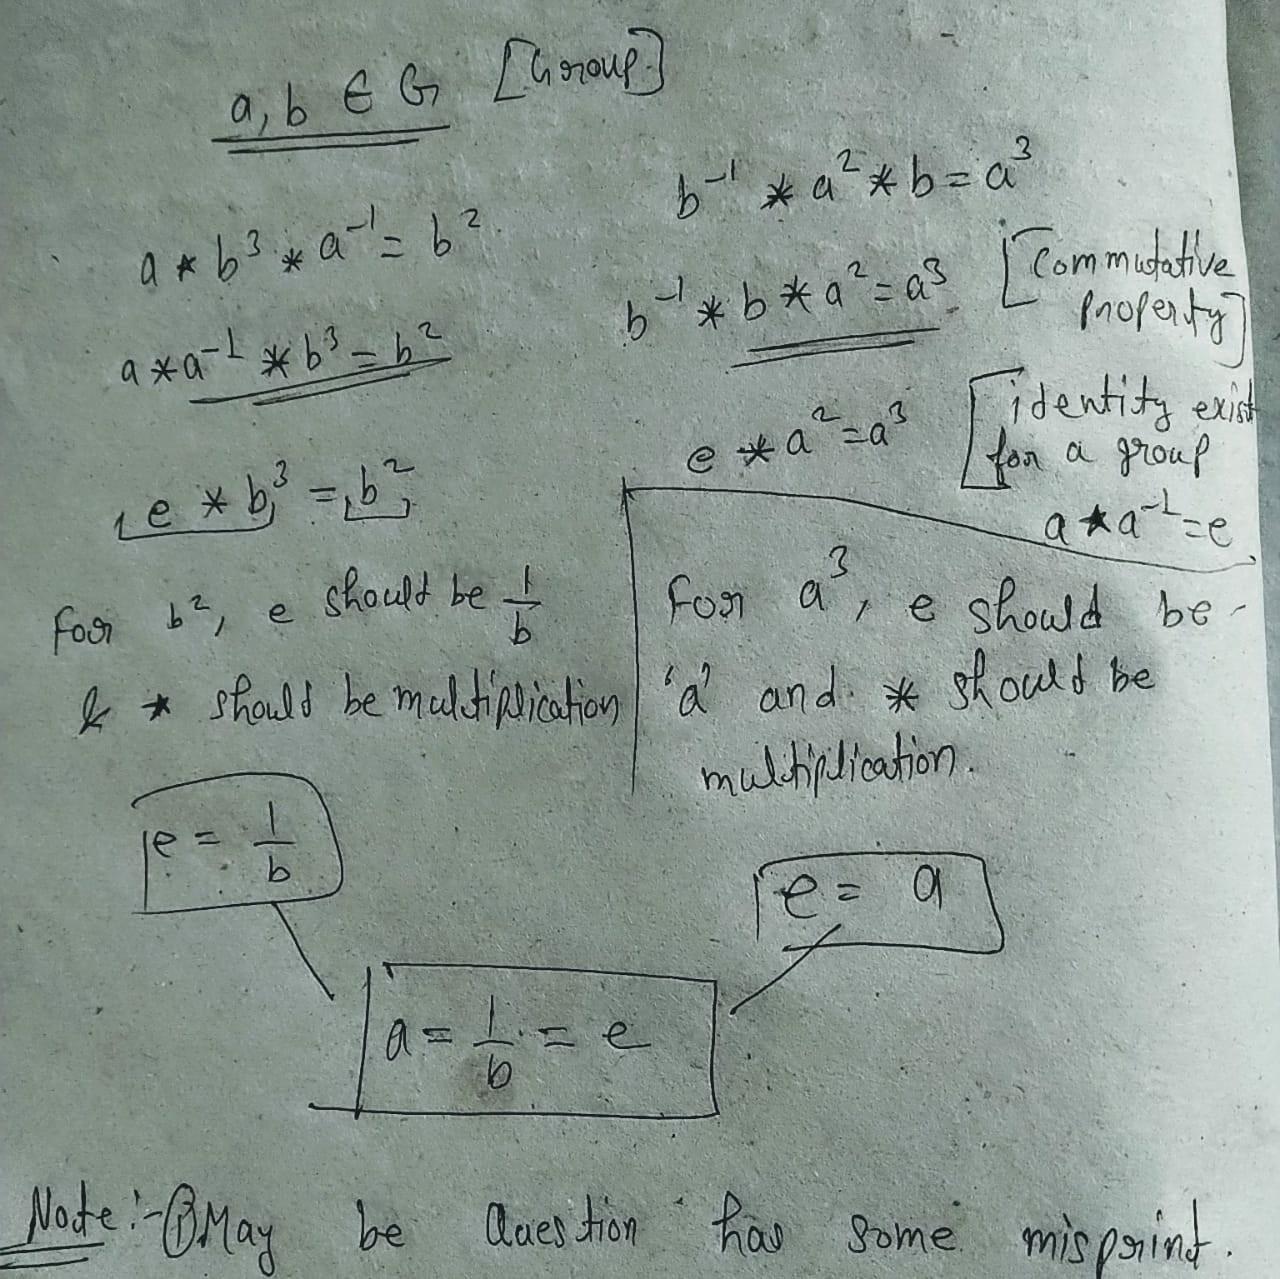 a, b ∈ G [Group]
a * b³ * a⁻¹ = b²
a * a⁻¹ * b³ = b²
e * b³ = b²
for b², e should be 1/b
& * should be multiplication
b⁻¹ * a² * b = a³
b⁻¹ * b * a² = a³ [Commutative
Property]
e * a² = a³ [identity exist
for a group
a * a⁻¹ = e
For a³, e should be
'a' and * should be
multiplication.
e = 1/b
e = a
a = 1/b = e
Note:- ① May be Question has some misprint.